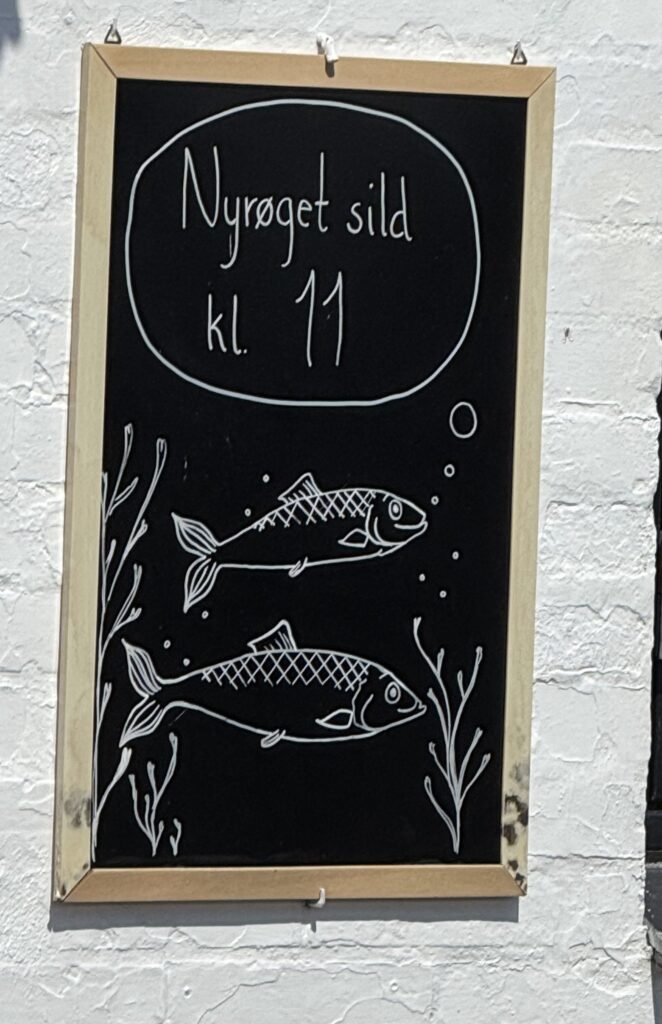 Nyrøget sild
kl. 11